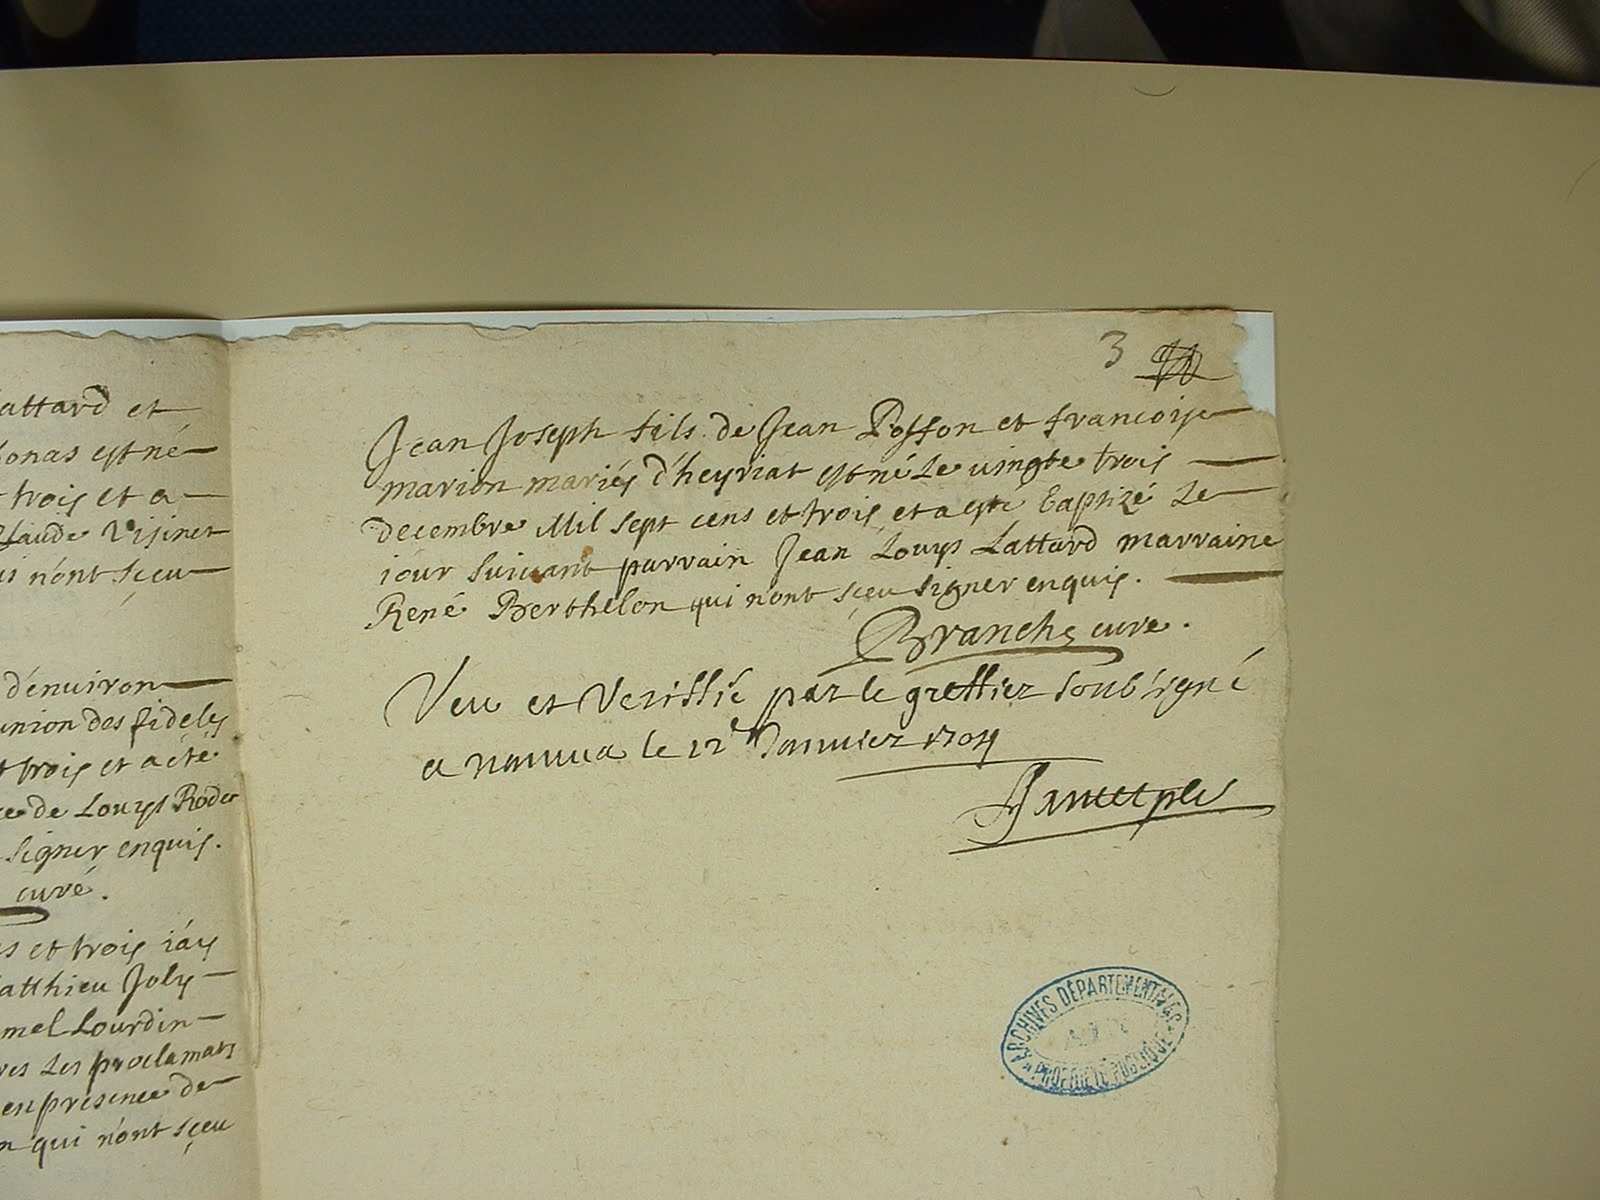 attard et
onas est né
trois et a
Claude Visinet
n'ont sçeu
d'enuiron
union des fideles
trois et a été
de Louys Rode
signer enquis.
curé.
et trois i'ay
atthieu Joly
mel Lourdin
Les proclamats
en presence de
qui n'ont sçeu
3
Jean Joseph fils de Jean Posson et francoise
marion mariés d'heyriat est né Le vingte trois
decembre Mil sept cens et trois et a esté baptizé Le
iour suivant parrain Jean Louys Lattard marraine
René Berthelon qui n'ont sçeu signer enquis.
Branche curé.
Veu et Veriffié par le greffier soubsigné
a nantua le 12e Januier 1704
ARCHIVES DÉPARTEMENTALES
AIN
PROPRIÉTÉ PUBLIQUE